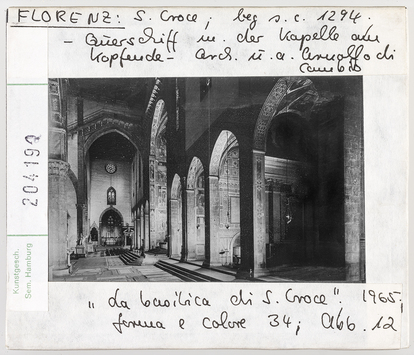 FLORENZ: S. Croce; beg s.c. 1294.
- Querschiff m. der Kapelle am
Kopfende - Arch. u.a. Arnolfo di
Cambio
204191
Kunstgesch.
Sem. Hamburg
"La basilica di S. Croce". 1965;
forma e colore 34; Abb. 12